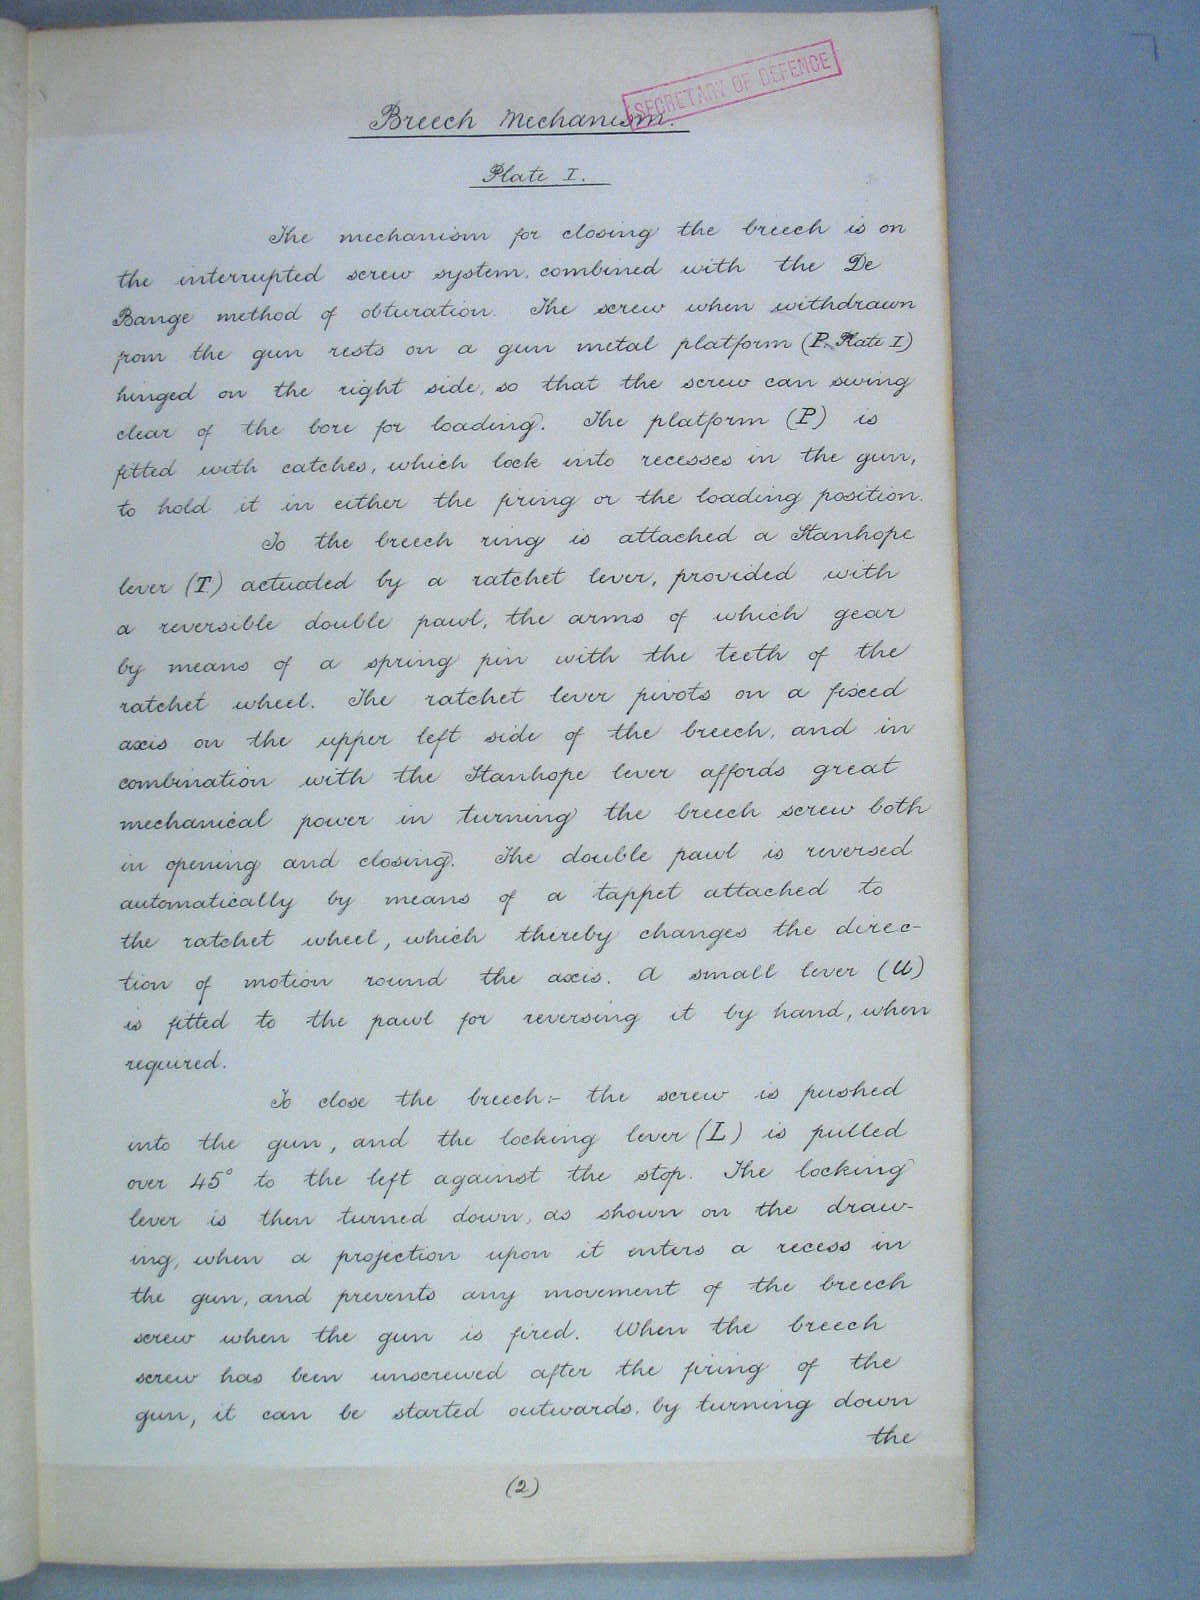 SECRETARY OF DEFENCE
Breech Mechanism.
Plate I.
The mechanism for closing the breech is on
the interrupted screw system, combined with the De
Bange method of obturation. The screw when withdrawn
from the gun rests on a gun metal platform (P. Plate I)
hinged on the right side, so that the screw can swing
clear of the bore for loading. The platform (P) is
fitted with catches, which lock into recesses in the gun,
to hold it in either the firing or the loading position.
To the breech ring is attached a Stanhope
lever (T) actuated by a ratchet lever, provided with
a reversible double pawl, the arms of which gear
by means of a spring pin with the teeth of the
ratchet wheel. The ratchet lever pivots on a fixed
axis on the upper left side of the breech, and in
combination with the Stanhope lever affords great
mechanical power in turning the breech screw both
in opening and closing. The double pawl is reversed
automatically by means of a tappet attached to
the ratchet wheel, which thereby changes the direc-
tion of motion round the axis. A small lever (U)
is fitted to the pawl for reversing it by hand, when
required.
To close the breech:- the screw is pushed
into the gun, and the locking lever (L) is pulled
over 45° to the left against the stop. The locking
lever is then turned down, as shown on the draw-
ing, when a projection upon it enters a recess in
the gun, and prevents any movement of the breech
screw when the gun is fired. When the breech
screw has been unscrewed after the firing of the
gun, it can be started outwards, by turning down
the
(2)